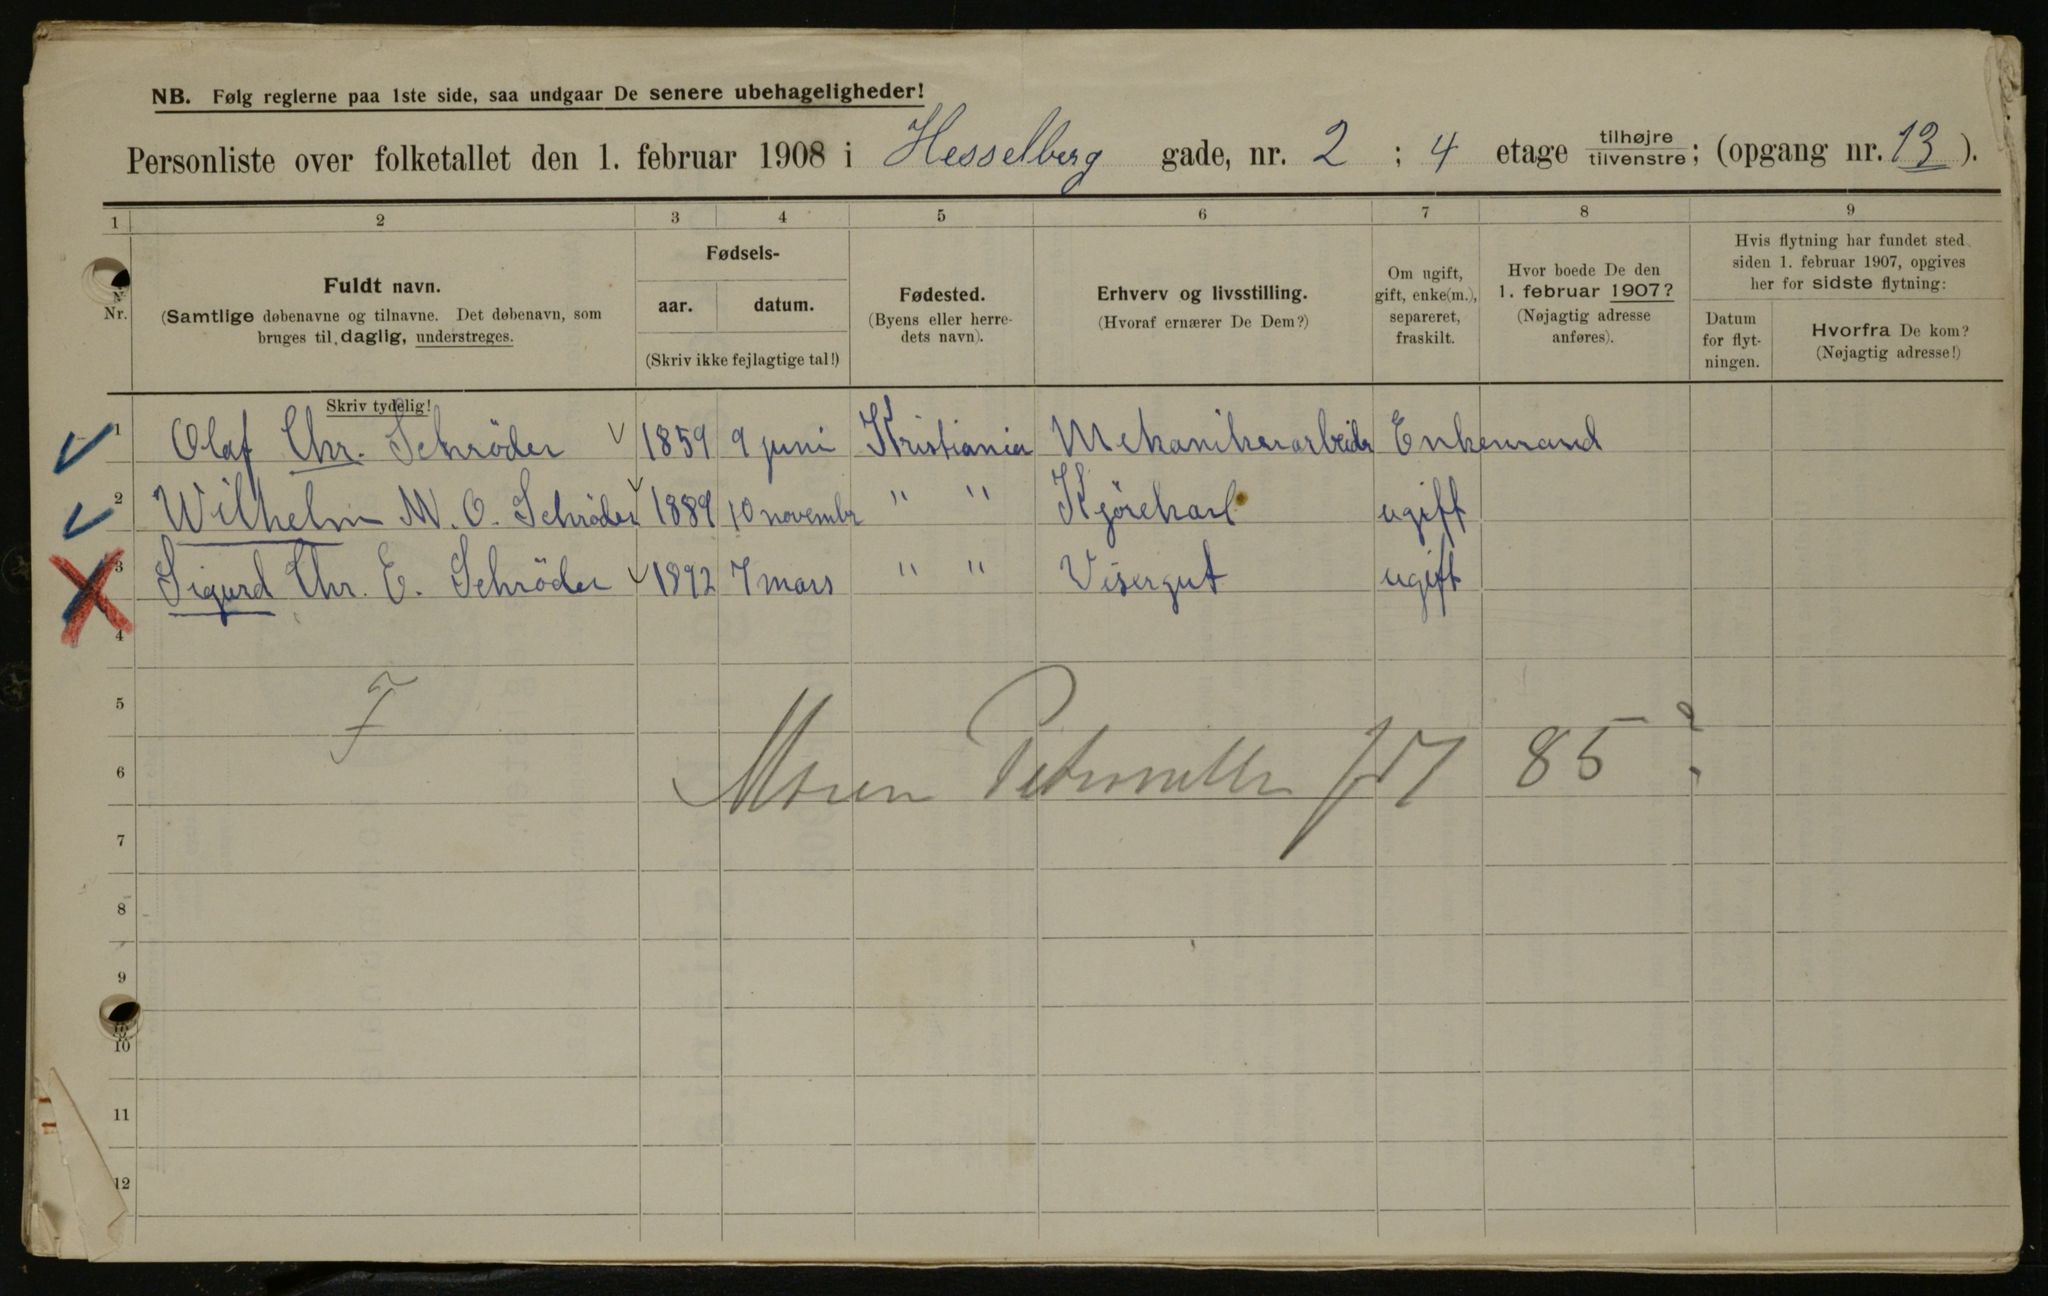 NB. Følg reglerne paa 1ste side, saa undgaar De senere ubehageligheder!
Personliste over folketallet den 1. februar 1908 i Hesselberg gade, nr. 2 ; 4 etage tilhøjre tilvenstre; (opgang nr. 13 ).
1 2 3 4 5 6 7 8 9
Nr.
Fuldt navn.
(Samtlige døbenavne og tilnavne. Det døbenavn, som
bruges til daglig, understreges.
Fødsels-
aar. datum.
(Skriv ikke fejlagtige tal!)
Fødested.
(Byens eller herre-
dets navn).
Erhverv og livsstilling.
(Hvoraf ernærer De Dem?)
Om ugift,
gift, enke(m.),
separeret,
fraskilt.
Hvor boede De den
1. februar 1907?
(Nøjagtig adresse
anføres).
Hvis flytning har fundet sted
siden 1. februar 1907, opgives
her for sidste flytning:
Datum
for flyt-
ningen.
Hvorfra De kom?
(Nøjagtig adresse!)
Skriv tydelig!
1 Olaf Chr. Schrøder 1859 9 juni Kristiania Mekanikerarbeider Enkemand
2 Wilhelm M. O. Schrøder 1889 10 novembr " " Kjörekarl ugift
3 Sigurd Chr. E. Schröder 1892 7 mars " " Visergut ugift
4
5 F
6 Moren 85 ?
7
8
9
10
11
12